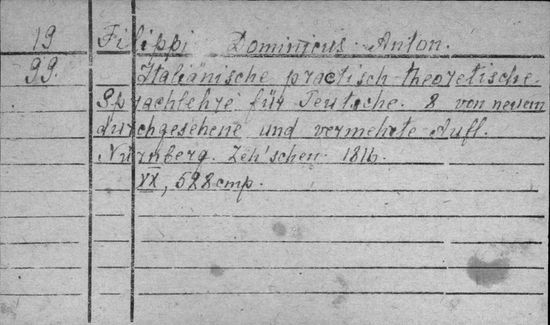 19 Filippi Dominicus Anton.
99. Italiänische practisch-theoretische
Sprachlehre für Teutsche. 8 von neuem
durchgesehene und vermehrte Aufl.
Nürnberg. Zeh'schen. 1816.
XX, 528 cmp.